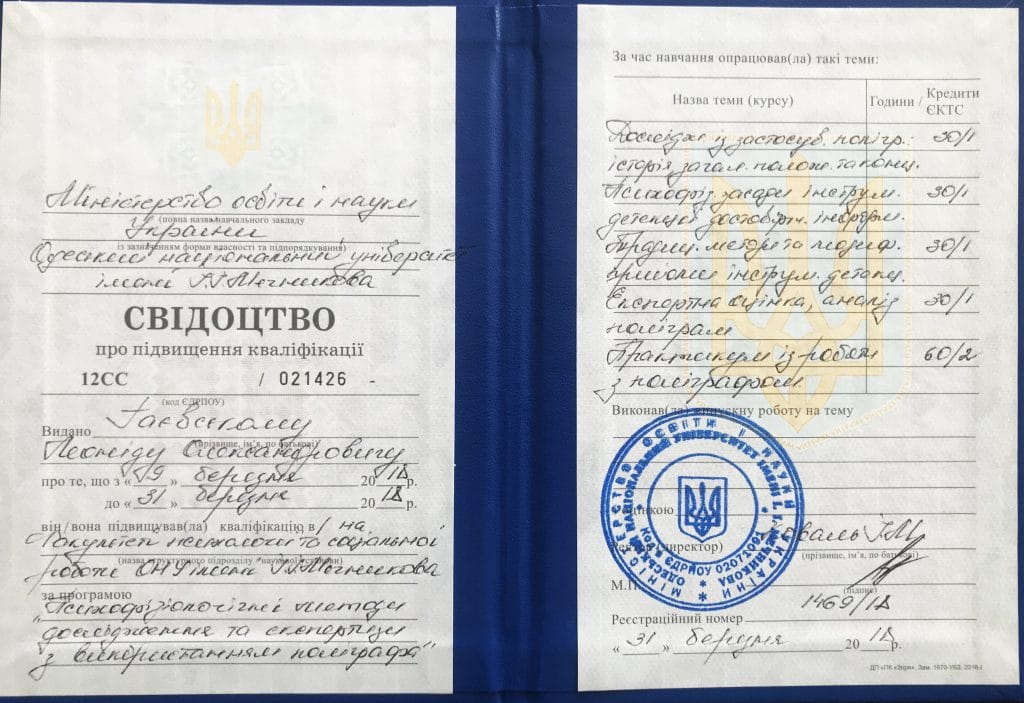 Міністерство освіти і науки
(повна назва навчального закладу
України
із зазначенням форми власності та підпорядкування)
Одеський національний університет
імені І.І.Мечникова
СВІДОЦТВО
про підвищення кваліфікації
12СС / 021426 -
(код ЄДРПОУ)
Видано Гаєвському
(прізвище, ім'я, по батькові)
Леоніду Олександровичу
про те, що з « 19 » березня 20 18 р.
до « 31 » березня 20 18 р.
він/вона підвищував(ла) кваліфікацію в/на
Факультеті психології та соціальної
(назва структурного підрозділу / наукової установи)
роботи ОНУ імені І.І.Мечникова
за програмою
"Психофізіологічні методи
дослідження та експертизи
з використанням поліграфа"
За час навчання опрацював(ла) такі теми:
Назва теми (курсу) Години / Кредити ЄКТС
Дослідж. із застосув. полігр.: 30/1
історія, загал. полож. та конц.
Психофіз. засади інструм. 30/1
детекції достовірн. інформ.
Традиц. методи та модиф. 30/1
прийоми інструм. детекц.
Експертна оцінка, аналіз 30/1
поліграм
Практикум із роботи 60/2
з поліграфом.
Виконав(ла) випускну роботу на тему
з оцінкою
Ректор (директор) Коваль І.М.
(прізвище, ім'я, по батькові)
М.П.
(підпис)
Реєстраційний номер 1469/18
« 31 » березня 20 18 р.
ДП «ПК «Зоря». Зам.
МІНІСТЕРСТВО ОСВІТИ І НАУКИ УКРАЇНИ
ОДЕСЬКИЙ НАЦІОНАЛЬНИЙ УНІВЕРСИТЕТ ІМЕНІ І. І. МЕЧНИКОВА
Код ЄДРПОУ 02071091